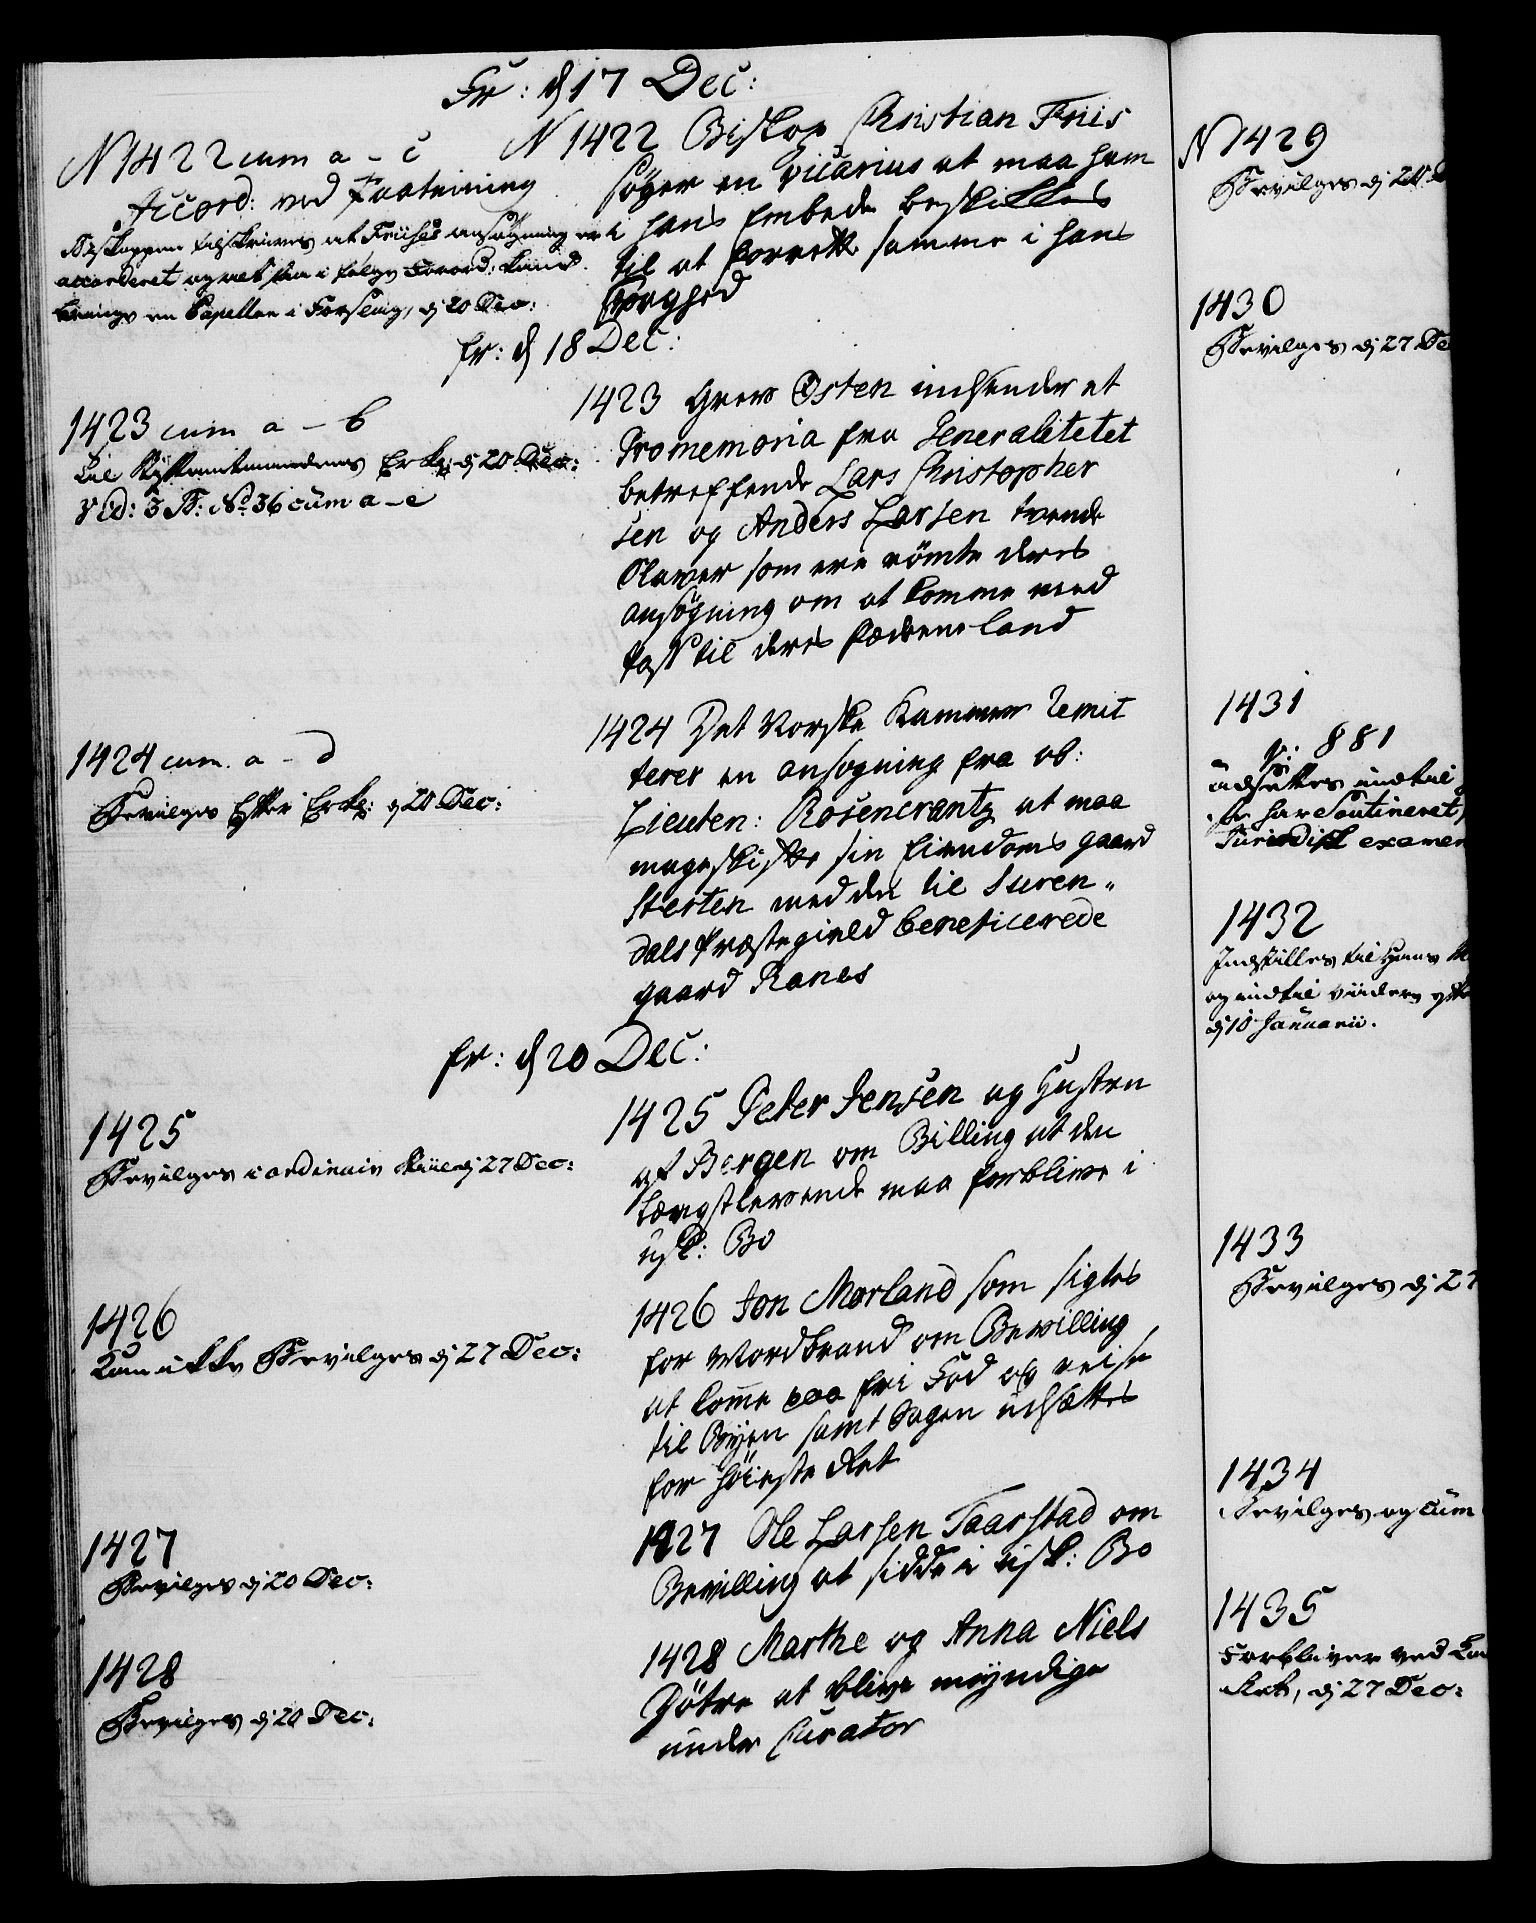 Fr: d 17 Dec:
N 1422 cum a - c
Accord: ved
Biskoppen tilskrives at Friises ansøgning er
accorderet og at
en Capellan i Forslag, dj 20 Dec:
N 1422 Biskop Christian Friis
søger en Vicarius at maa ham
i hans Embede beskikkes
til at forrette samme i hans
Svaghed
fr: d 18 Dec:
1423 cum a - b
dj 20 Dec:
vid: 3 B: No 36 cum a - e
1423 Grev Osten indsender et
Promemoria fra Generalitetet
betreffende Lars Christopher
sen og Anders Larsen tvende
Slaver som ere rømte deres
ansøgning om at komme med
Pass til deres Fædrene land
1424 cum. a - d
Bevilges Efter Erkl: dj 20 Dec:
1424 Det Norske Kammer remit
terer en ansøgning fra ob:
Lieuten: Rosencrantz at maa
mageskifte sin Eiendoms gaard
med den til Suren-
dals Præstegield beneficerede
gaard Ranes
fr: d 20 Dec:
1425
Bevilges i ordinair Stiil dj 27 Dec:
1425 Peter Jensen og Hustru
af Bergen om Billing at den
Længstlevende maa forblive i
usk: Bo
1426
Kan ikke Bevilges dj 27 Dec:
1426 Jon Morland som sigtes
for Mordbrand om Bevilling
at kome paa fri Fod og reise
til Byen samt Sagen udsættes
for Höieste Ret
1427
Bevilges dj 20 Dec:
1427 Ole Larsen Taarstad om
Bevilling at sidde i usk: Bo
1428
Bevilges dj 20 Dec:
1428 Marthe og Anna Niels
Døtre at blive myndige
under Curator
N 1429
Bevilges dj 20 D
1430
Bevilges dj 27 De
1431
881
udsættes indtil
har Continueret
Juridisk examen
1432
Indstilles til Hans
og indtil videre
dj 10 Januarii.
1433
Bevilges dj 27
1434
Bevilges og cum
1435
Forbliver ved
Ret, dj 27 Dec: